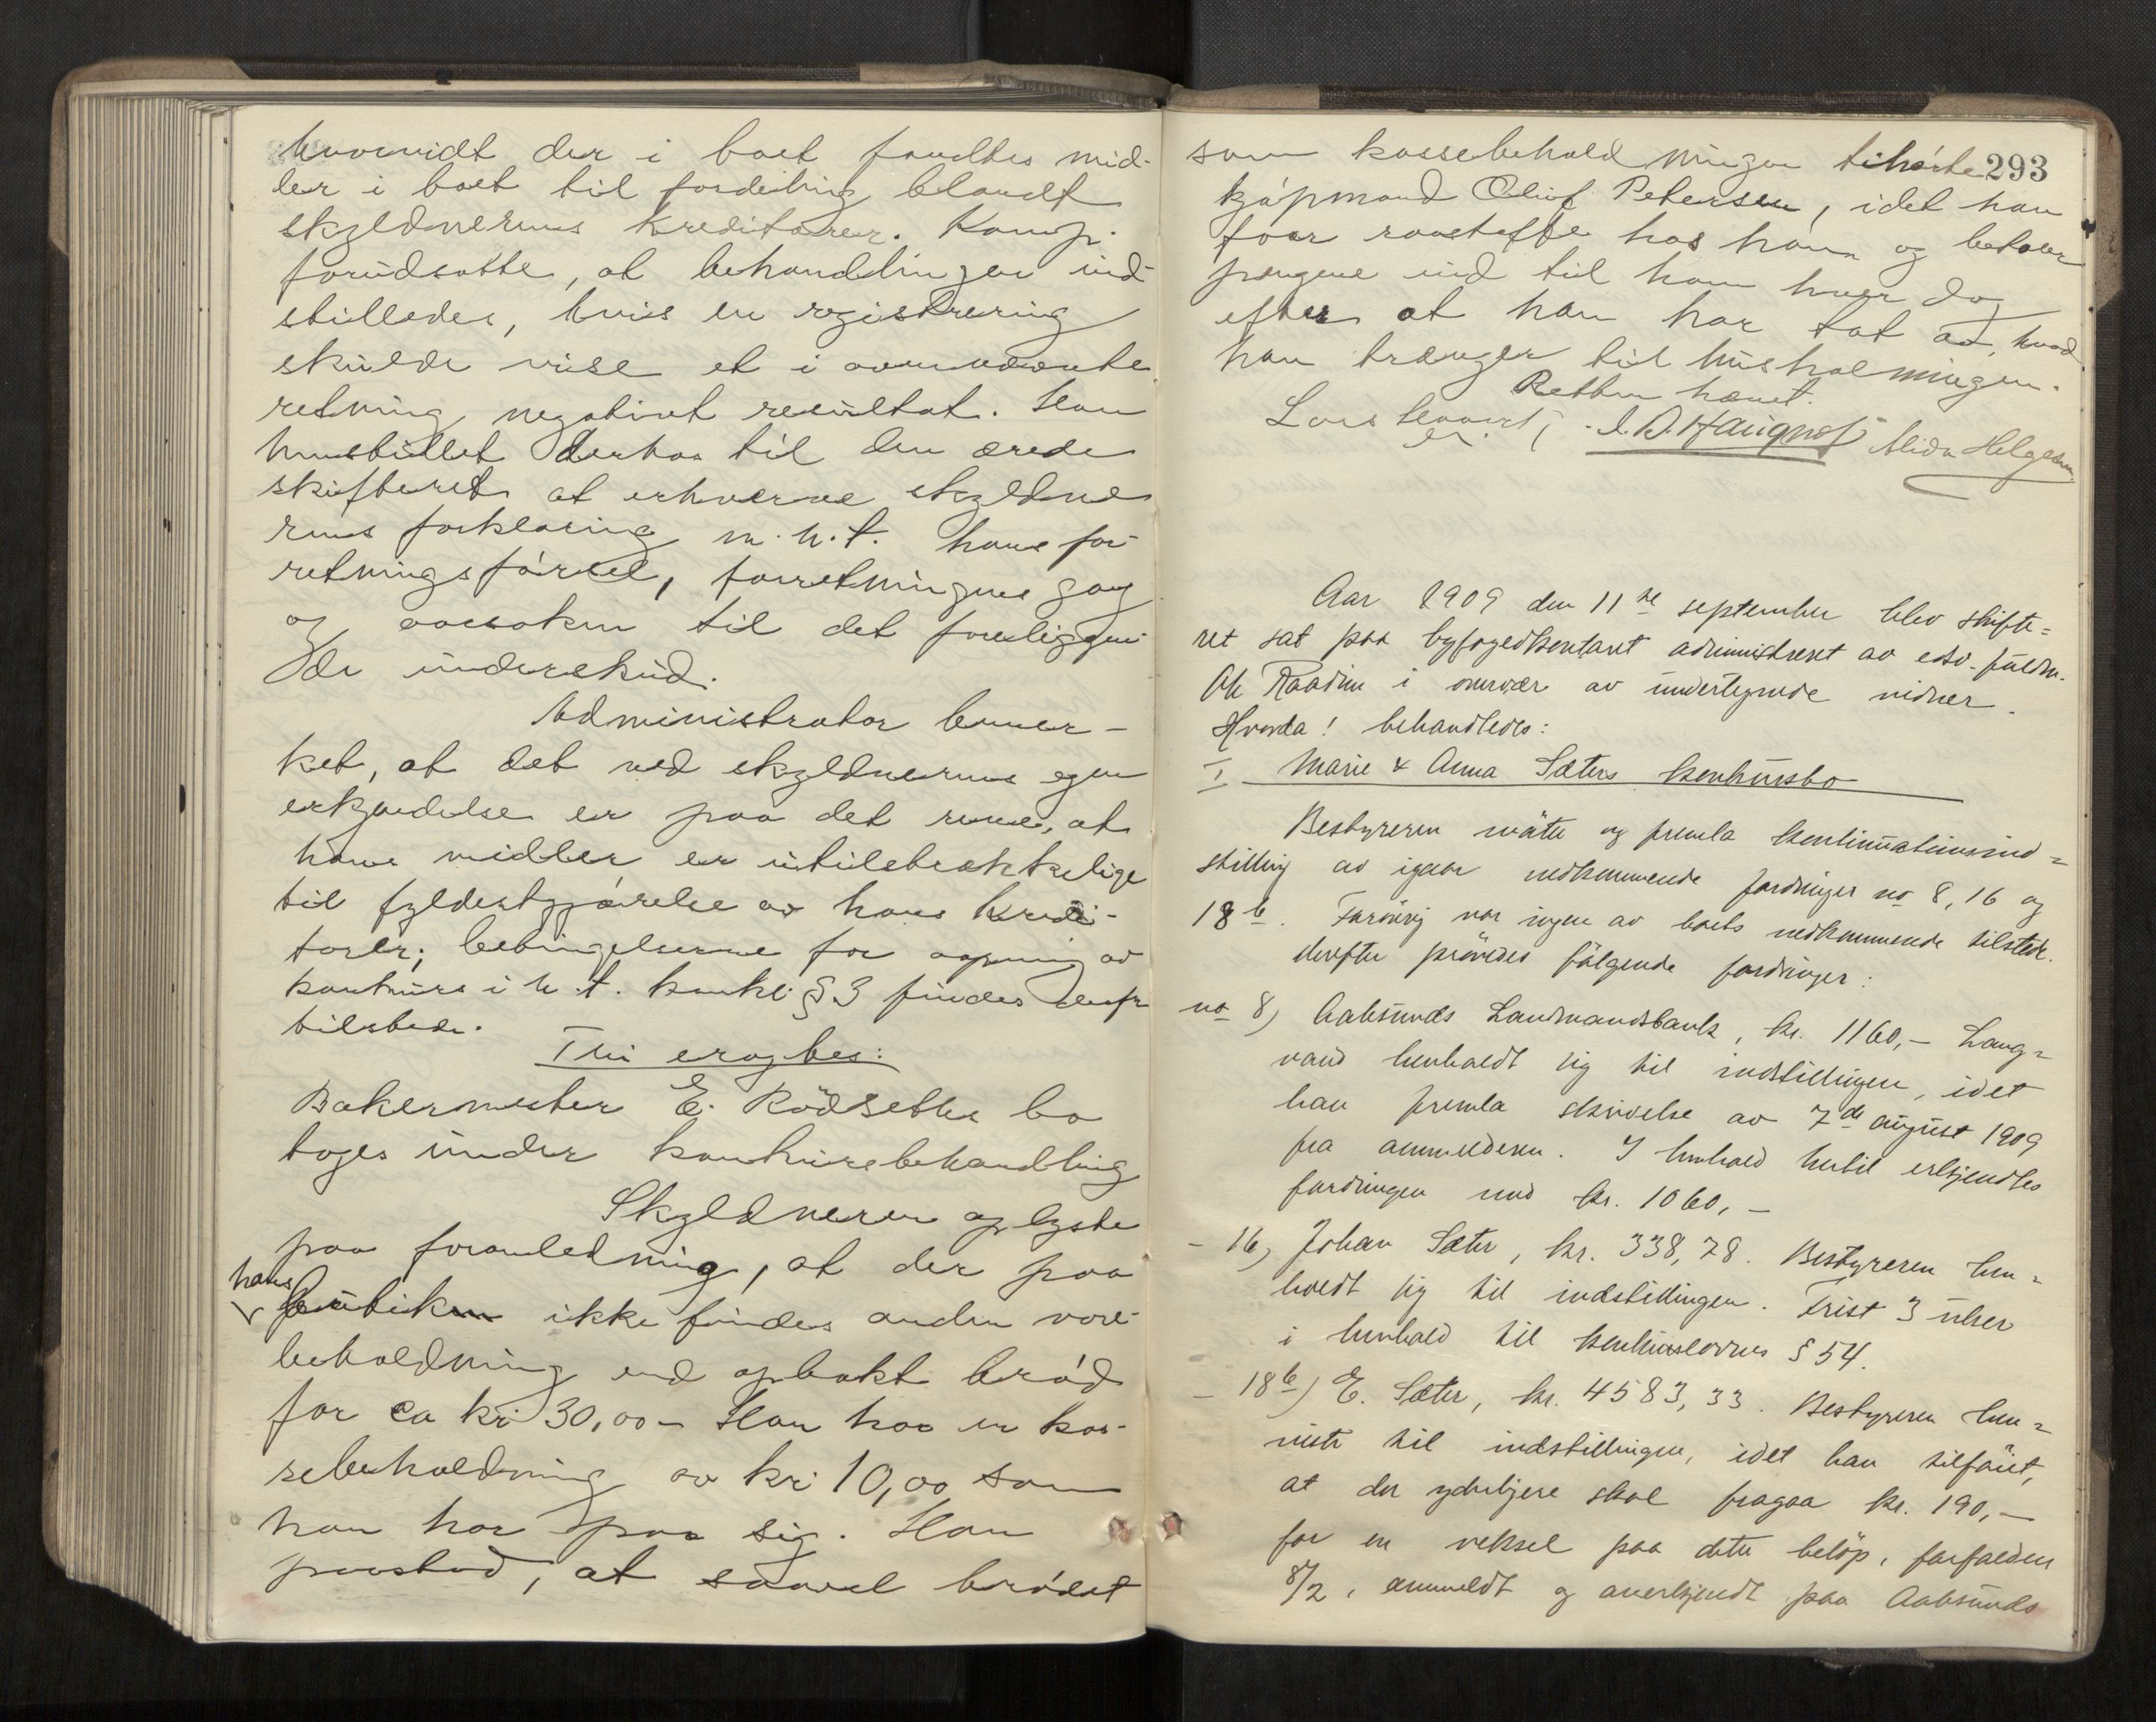 hvorvidt der i boet fandtes mid-
ler i boet til fordeling blandt
skyldnerens kreditorer. Komp.
forudsatte, at behandlingen ind-
stilledes, hvis en registrering
skulde vise et i ovennævnte
retning negativt resultat. Han
henstillet derhos til den ærede
skifteret at erhverve skyldne
rens forklaring m.h.t. hans for-
retningsførsel, forretningens gang
og aarsaken til det foreliggen-
de underskud.
Administrator bemer-
ket, at det ved skyldnerens egen
erkjendelse er paa det rene, at
hans midler er utilstrækkelige
til fyldestgjørelse av hans kredi-
torer; betingelserne for aapning av
konkurs i h.t. konkl. § 3 findes derfor
tilstede.
Thi eragtes:
Bakermester E. Rødsethes bo
tages under konkursbehandling
Skyldneren oplyste
paa foranledning, at der paa
hans
butiken ikke findes anden vare-
beholdning end opbakt brød
for ca kr 30,00 – Han har en kas-
sebeholdning av kr 10,00 som
han har paa sig. Han
paastod, at saavel brødet
293
som kassebeholdningen tilhørte
kjøpmand Oluf Petersen, idet han
faar raastoffe hos ham og betaler
pengene ind til ham hver dag
efter at han har tat av, hvad
han trænger til husholdningen.
Retten hævet.
Lars I. A. Haugnes Alida Helgesen
Aar 1909 den 11te september blev skifte=
ret sat paa byfogedkontoret administreret av edsv. fuldm.
Ole Raadim i overvær av undertegnede vidner.
Hvorda! behandledes:
I Marie & Anna Sæters konkursbo
Bestyreren møtte og fremla kontinuationsind=
stilling av igaar vedkommende fordringer no 8, 16 og
18b. Forøvrig var ingen av boets vedkommende tilstede.
derefter prøvedes følgende fordringer:
no 8) Aalesunds Landmandsbank, kr. 1160,– Lang=
vand henholdt sig til indstillingen, idet
han fremla skrivelse av 7de august 1909
fra anmelderen. I henhold hertil erkjendtes
fordringen med kr. 1060,–
– 16) Johan Sæter, kr. 338,78. Bestyreren hen=
holdt sig til indstillingen. Frist 3 uker
i henhold til konkurslovens § 54.
– 18b) E. Sæter, kr. 4583,33. Bestyreren hen=
viste til indstillingen, idet han tilføiet,
at der yderligere skal fragaa kr. 190,–
for en veksel paa dette beløp, forfalden
8/2, anmeldt og anerkjendt paa Aalesunds